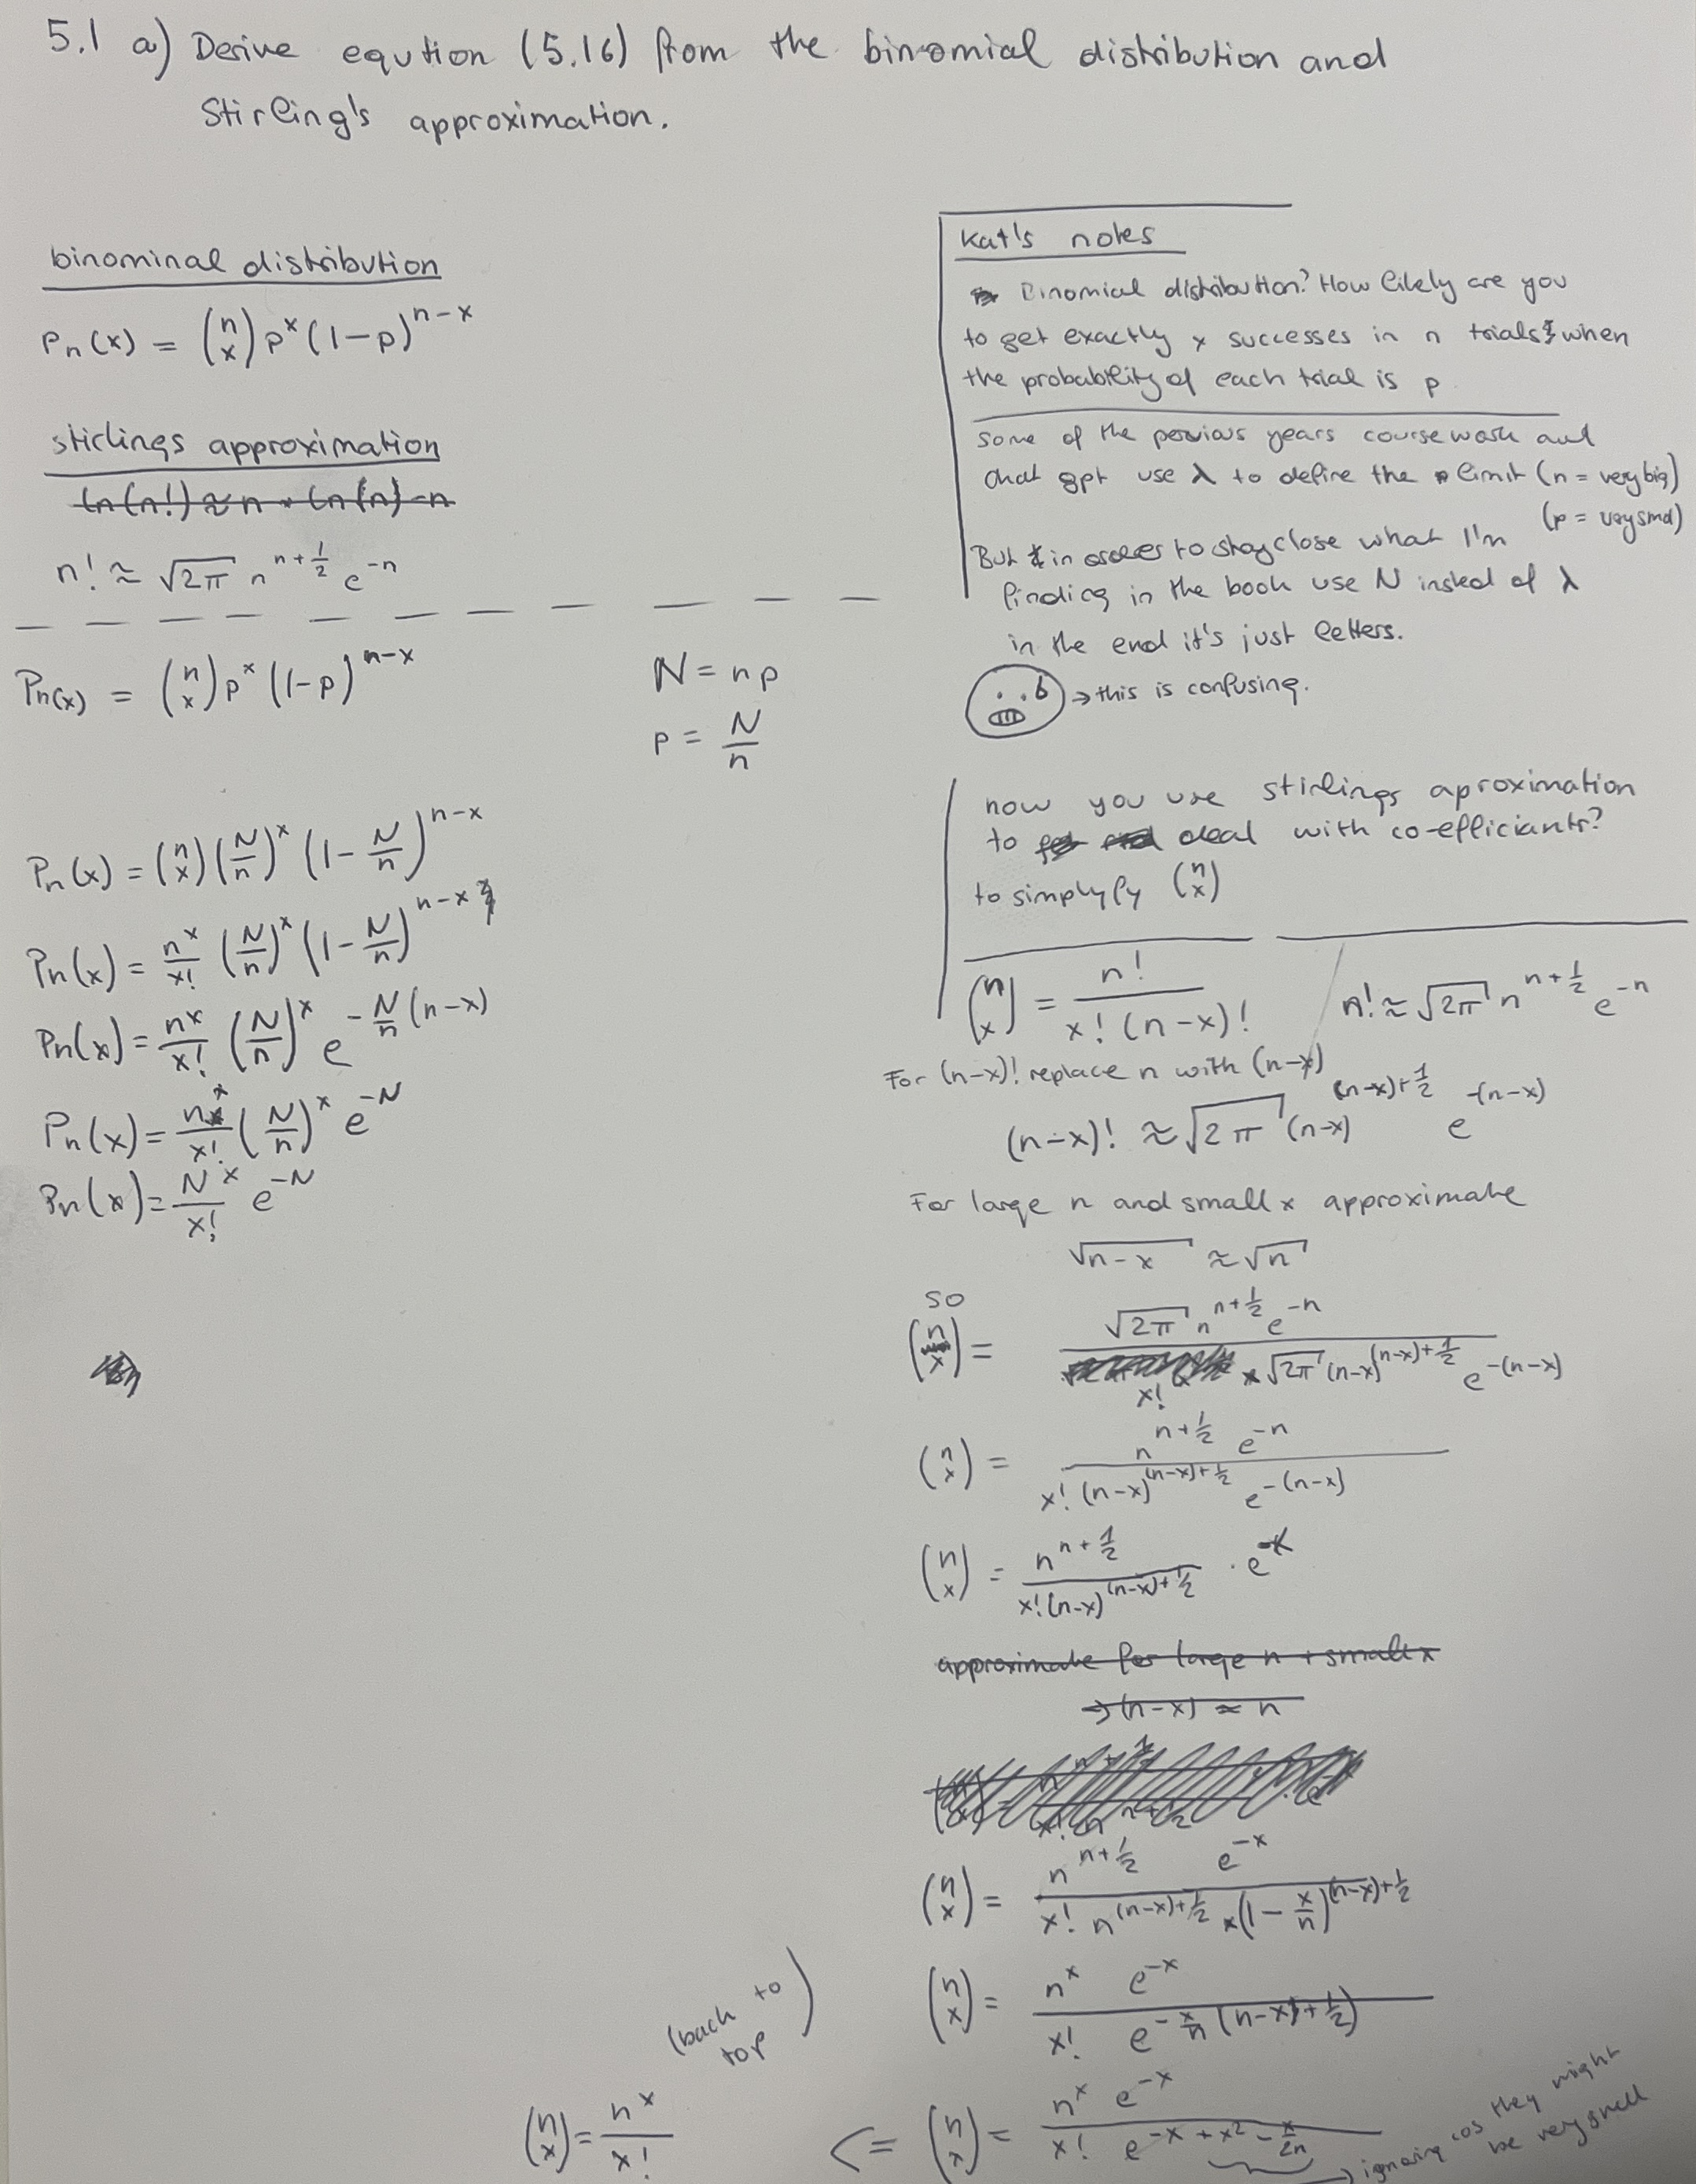 5.1 a) Derive eqution (5.16) from the binomial distribution and
Stirling's approximation.
binominal distribution
Pn(x) = (n x) p^x (1-p)^{n-x}
stirlings approximation
ln(n!) ≈ n * ln(n) - n
n! ≈ √2π n^{n+1/2} e^{-n}
Pn(x) = (n x) p^x (1-p)^{n-x}
N = np
p = N/n
Pn(x) = (n x) (N/n)^x (1 - N/n)^{n-x}
Pn(x) = n^x/x! (N/n)^x (1 - N/n)^{n-x}
Pn(x) = n^x/x! (N/n)^x e^{-N/n (n-x)}
Pn(x) = n^x/x! (N/n)^x e^{-N}
Pn(x) = N^x/x! e^{-N}
Kat's notes
Binomial distribution? How likely are you
to get exactly x successes in n trials when
the probability of each trial is p
some of the pervious years coursework and
chat gpt use λ to define the limit (n = very big)
(p = very smal)
But in order to stay close what I'm
finding in the book use N insted of λ
in the end it's just letters.
→ this is confusing.
now you use stirlings aproximation
to deal with co-efficiants?
to simplyfy (n x)
(n x) = n! / x! (n-x)!
n! ≈ √2π n^{n+1/2} e^{-n}
For (n-x)! replace n with (n-x)
(n-x)! ≈ √2π (n-x)^{(n-x)+1/2} e^{-(n-x)}
For large n and small x approximate
√n-x ≈ √n
so
(n x) = √2π n^{n+1/2} e^{-n} / x! * √2π (n-x)^{(n-x)+1/2} e^{-(n-x)}
(n x) = n^{n+1/2} e^{-n} / x! (n-x)^{(n-x)+1/2} e^{-(n-x)}
(n x) = n^{n+1/2} / x! (n-x)^{(n-x)+1/2} · e^{-x}
approximate for large n + small x
→ (n-x) ≈ n
(n x) = n^{n+1/2} e^{-x} / x! n^{(n-x)+1/2} * (1 - x/n)^{(n-x)+1/2}
(n x) = n^x e^{-x} / x! e^{-x/n (n-x)+1/2)}
(n x) = n^x e^{-x} / x! e^{-x + x² - x/2n}
→ ignoring cos they might
be very small
<=
(n x) = n^x / x!
(back to
top)